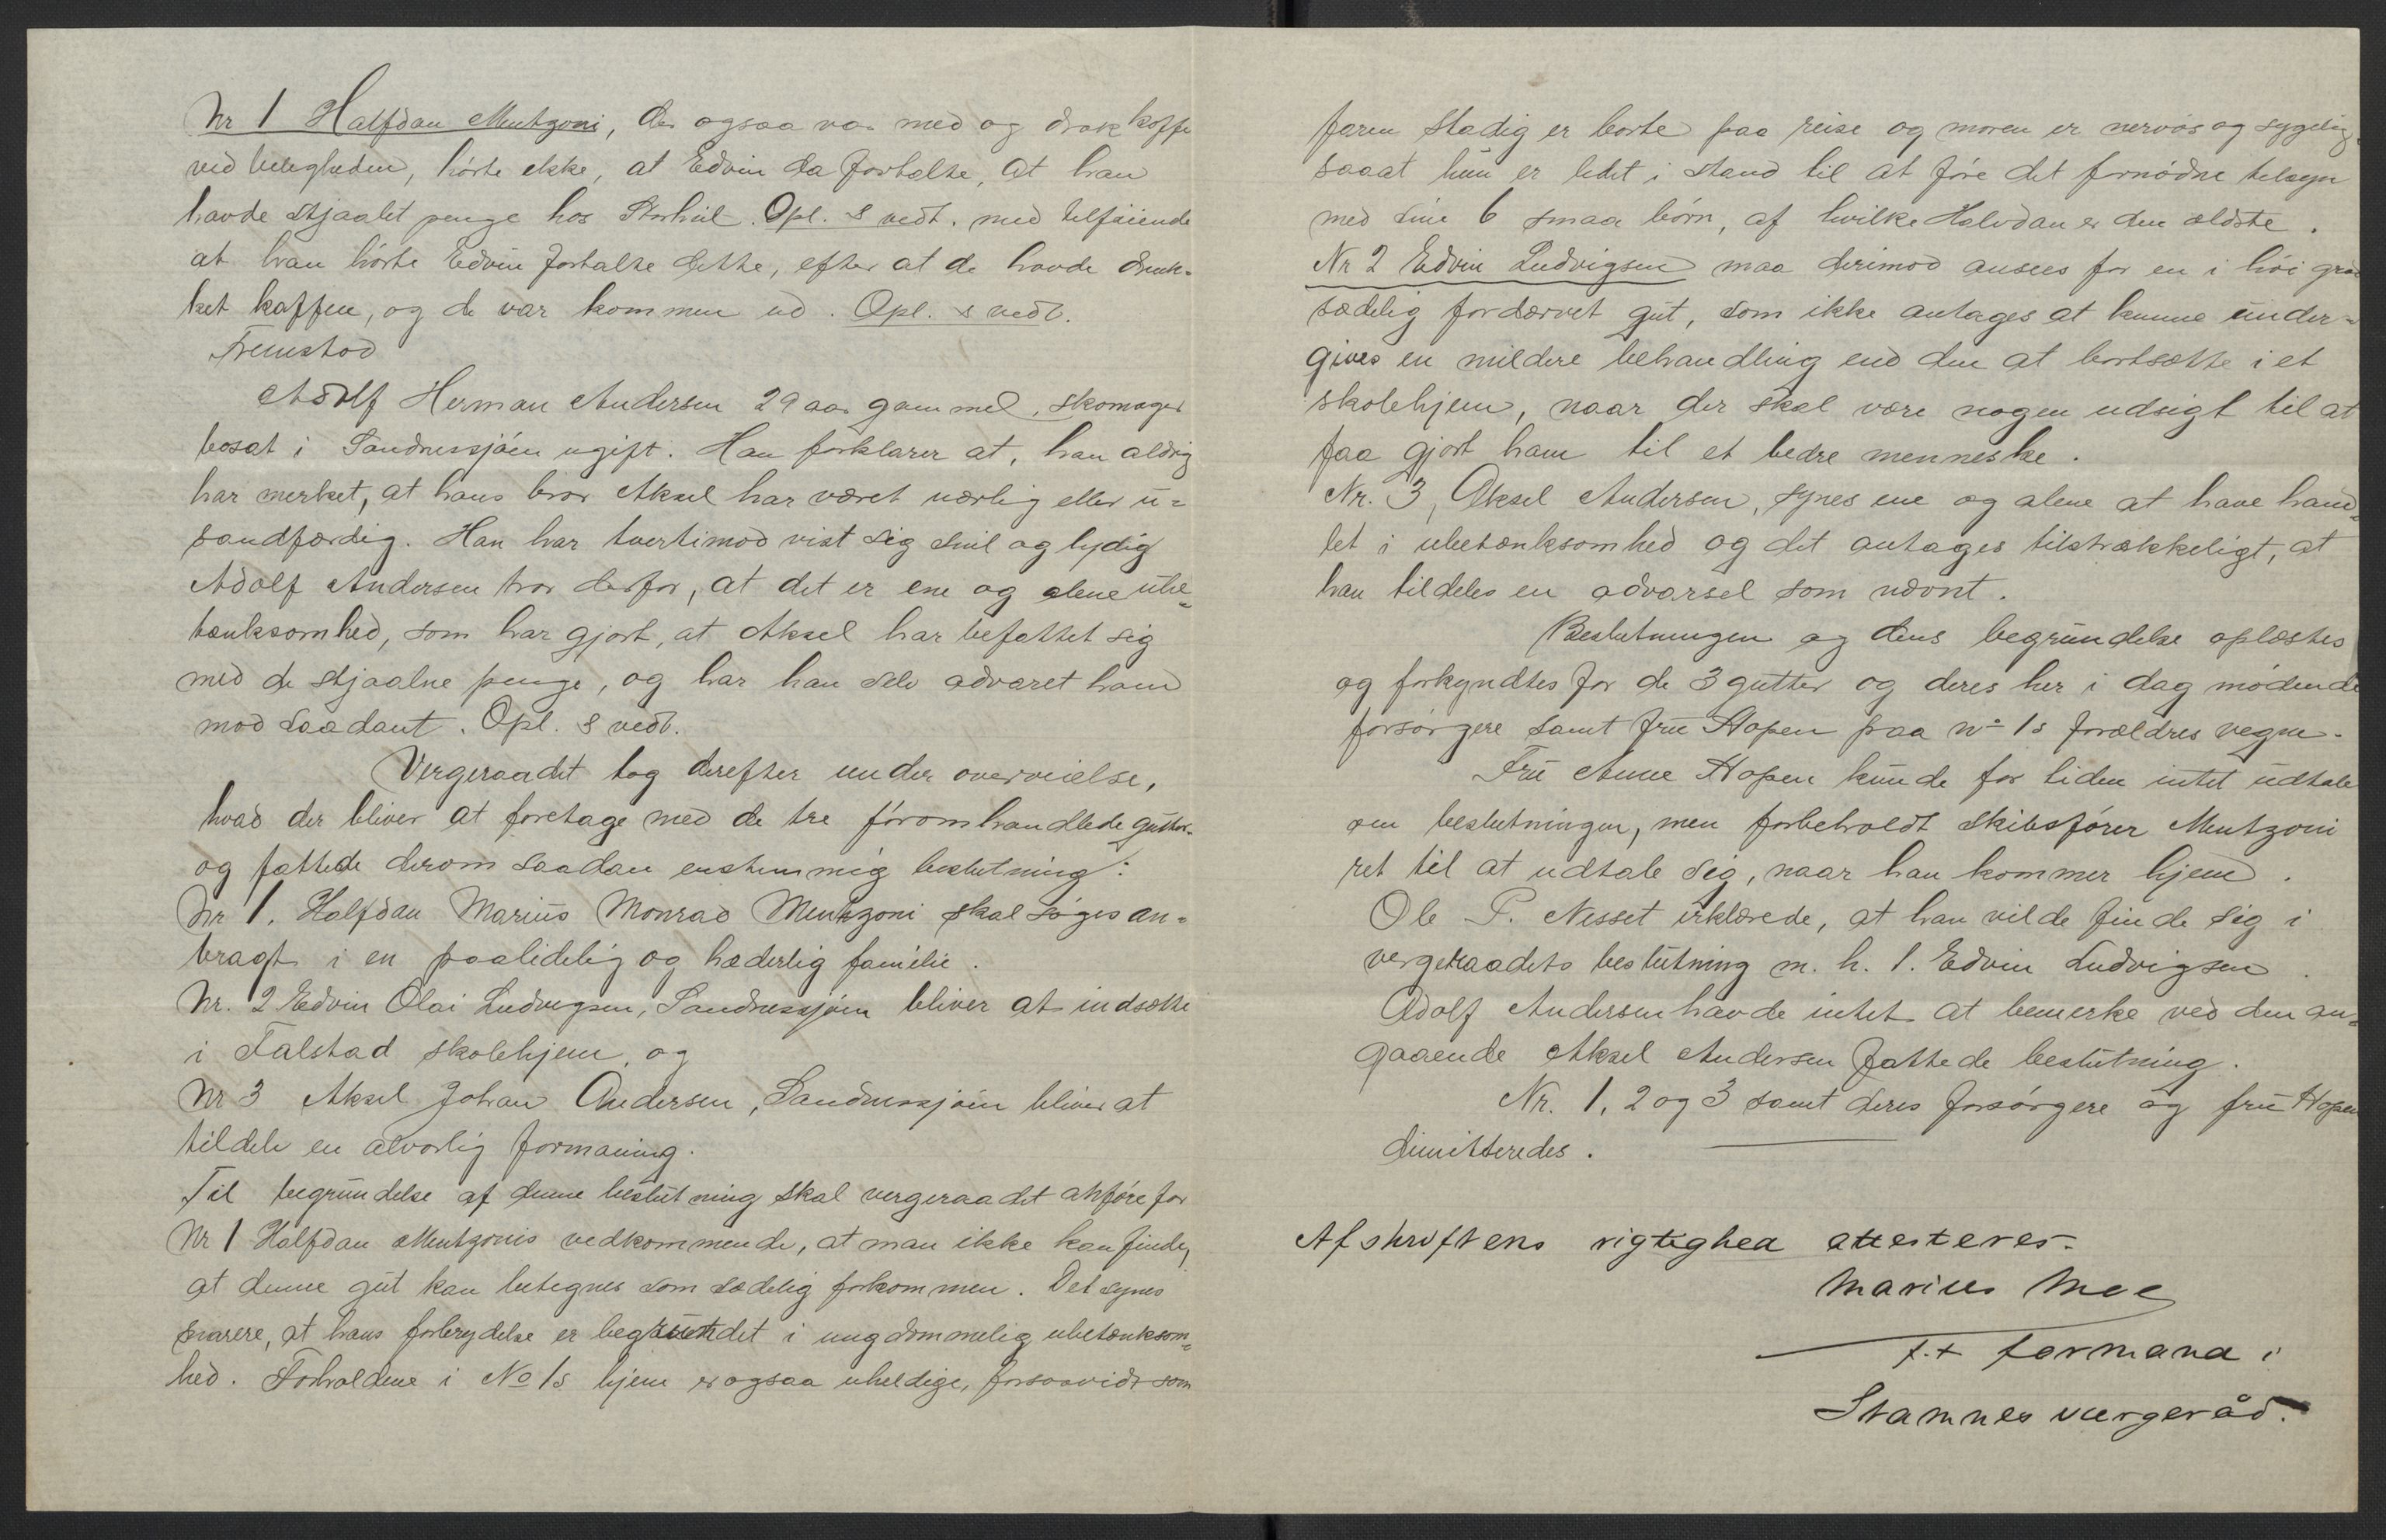 Nr 1 Halfdan Mentzoni, der ogsaa var med og drak kaffe
ved leiligheden, hørte ikke, at Edvin da fortalte, at han
havde stjaalet penge hos Storhiil. Opl. & vedt. med tilføiende
at han hørte Edvin fortalte dette, efter at de havde druk-
ket kaffen, og de var kommen ud. Opl. & vedt.
Fremstod
Adolf Herman Andersen 29 aar gammel, skomager
bosat i Sandnessjøen ugift. Han forklarer at, han aldrig
har merket, at hans bror Aksel har været uærlig eller u=
sandfærdig. Han har tvertimod vist sig snil og lydig
Adolf Andersen tror derfor, at det er ene og alene ube=
tænksomhed, som har gjort, at Aksel har befattet sig
med de stjaalne penge, og har han selv advaret ham
mod saadant. Opl. & vedt.
Vergeraadet tog derefter under overveielse,
hvad der bliver at foretage med de tre føromhandlede gutter.
og fattede derom saadan enstemmig beslutning:
Nr 1. Halfdan Marius Monrad Mentzoni skal søges an=
bragt i en paalidelig og hæderlig familie.
Nr. 2 Edvin Olai Ludvigsen, Sandnessjøen bliver at indsætte
i Falstad skolehjem, og
Nr 3 Aksel Johan Andersen, Sandnessjøen bliver at
tildele en alvorlig formaning.
Til begrundelse af denne beslutning skal vergeraadet anføre for
Nr 1 Halfdan Mentzonis vedkommende, at man ikke kan finde,
at denne gut kan betegnes som sædelig forkommen. Det synes
snarere, at hans forbrydelse er begrundet i ungdommelig ubetænksom=
hed. Forholdene i No 1s hjem er ogsaa uheldige, forsaavidt som
faren stadig er borte paa reise og moren er nervøs og sygelig,
saaat hun er lidet i stand til at føre det fornødne tilsyn
med sine 6 smaa børn, af hvilke Halvdan er den ældste.
Nr 2 Edvin Ludvigsen maa derimod ansees for en i høi grad
sædelig fordærvet gut, som ikke antages at kunne under=
gives en mildere behandling end den at bortsætte i et
skolehjem, naar der skal være nogen udsigt til at
faa gjort ham til et bedre menneske.
Nr. 3, Aksel Andersen, synes ene og alene at have hand=
let i ubetænksomhed og det antages tilstrækkeligt, at
han tildeles en advarsel som nævnt.
Beslutningen og dens begrundelse oplæstes
og forkyndtes for de 3 gutter og deres her i dag mødende
forsørgere samt fru Hopen paa no 1s forældres vegne.
Fru Anne Hopen kunde for tiden intet udtale
om beslutningen, men forbeholdt skibsfører Mentzoni
ret til at udtale sig, naar han kommer hjem.
Ole P. Nesset erklærede, at han vilde finde sig i
vergeraadets beslutning m. h. t. Edvin Ludvigsen.
Adolf Andersen havde intet at bemerke ved den an=
gaaende Aksel Andersen fattede beslutning.
Nr. 1, 2 og 3 samt deres forsørgere og fru Hopen
dimitteredes.
Afskriftens rigtighed attesteres.
Marius Moe
f.t. formand i
Stamnes vergeråd.